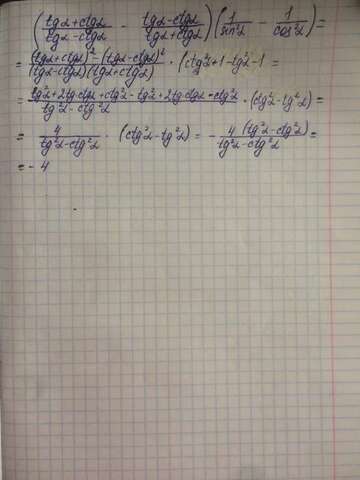 (tgα+ctgα / tgα-ctgα - tgα-ctgα / tgα+ctgα)(1/sin²α - 1/cos²α)=
= (tgα+ctgα)²-(tgα-ctgα)² / (tgα-ctgα)(tgα+ctgα) · (ctg²α+1-tg²α-1=
= tg²α+2tgα ctgα+ctg²α-tg²α+2tgα ctgα-ctg²α / tg²α-ctg²α · (ctg²α-tg²α)=
= 4 / tg²α-ctg²α · (ctg²α-tg²α) = - 4(tg²α-ctg²α) / tg²α-ctg²α =
= - 4